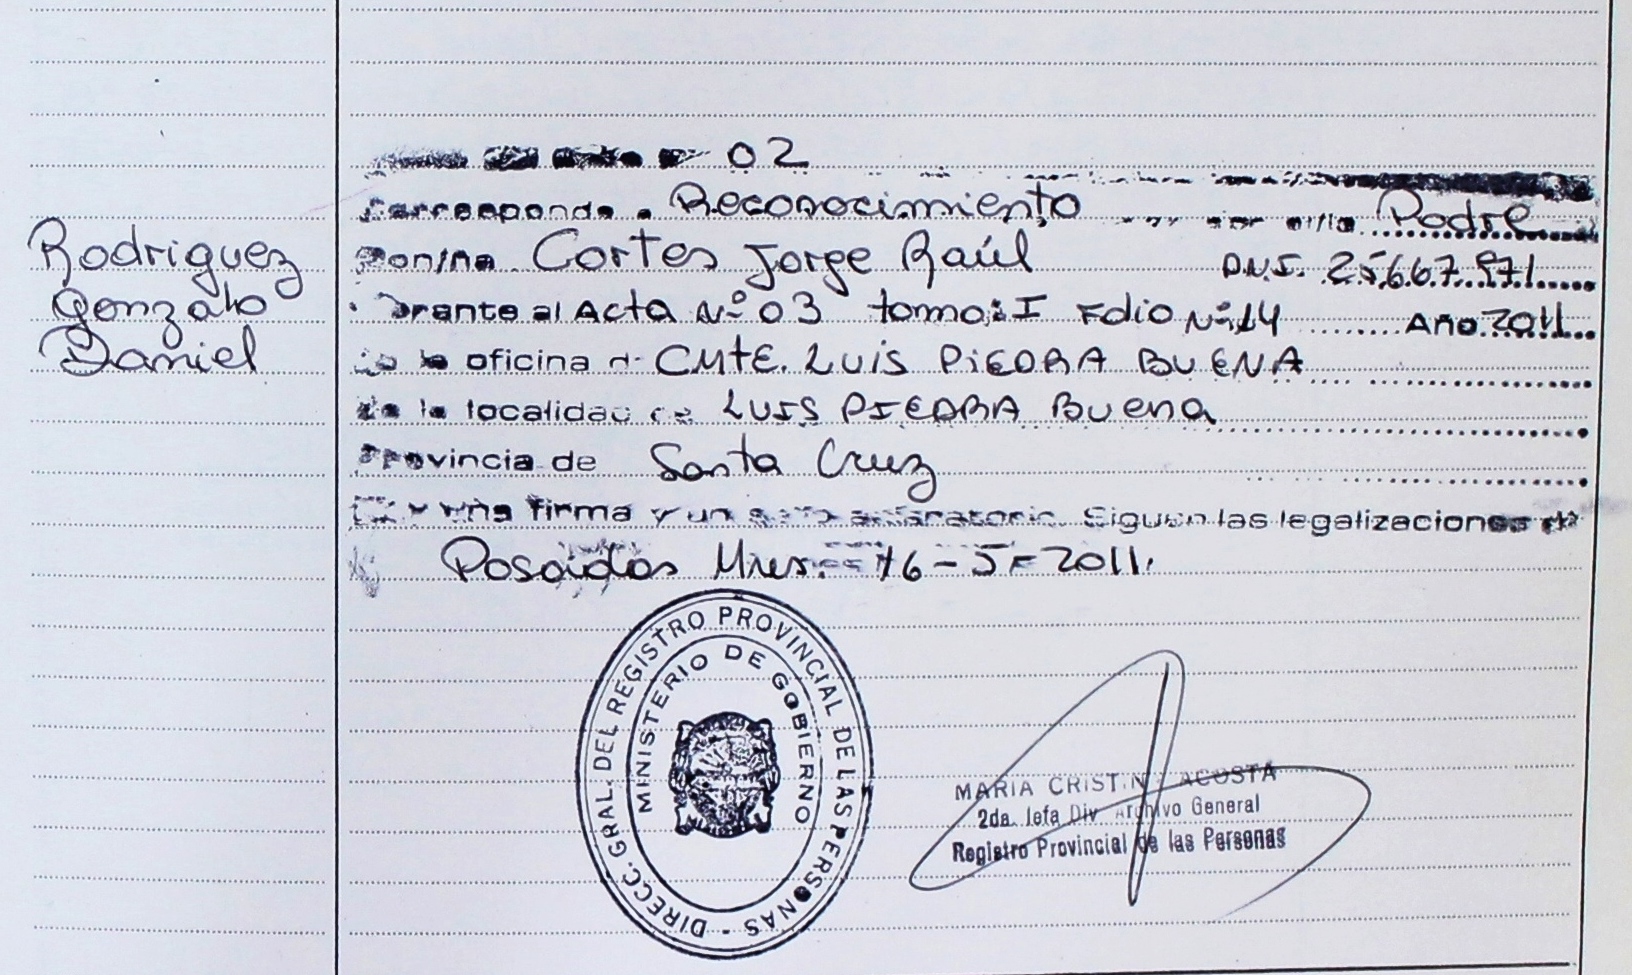 02
Corresponde a Reconocimiento por su Padre
Don/ña Cortes Jorge Raúl D.N.I. 25.667.971
Obrante al Acta Nº 03 tomo: I Folio Nº 14 Año 2011
De la oficina d CMTE. LUIS PIEDRA BUENA
de la localidad de LUIS PIEDRA BUENA
Provincia de Santa Cruz
Hay una firma y un sello aclaratorio. Siguen las legalizaciones
Posadas Mnes. 16-5-2011.
Rodriguez
Gonzalo
Daniel
DIRECC. GRAL. DEL REGISTRO PROVINCIAL DE LAS PERSONAS -
MINISTERIO DE GOBIERNO
MARIA CRISTINA ACOSTA
2da. Jefa Div Archivo General
Registro Provincial de las Personas